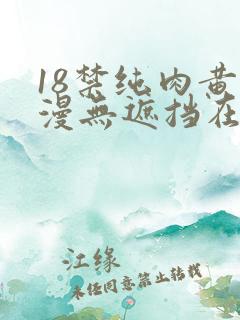 18禁纯肉黄
漫無遮挡在
江缘
未经同意禁止转载